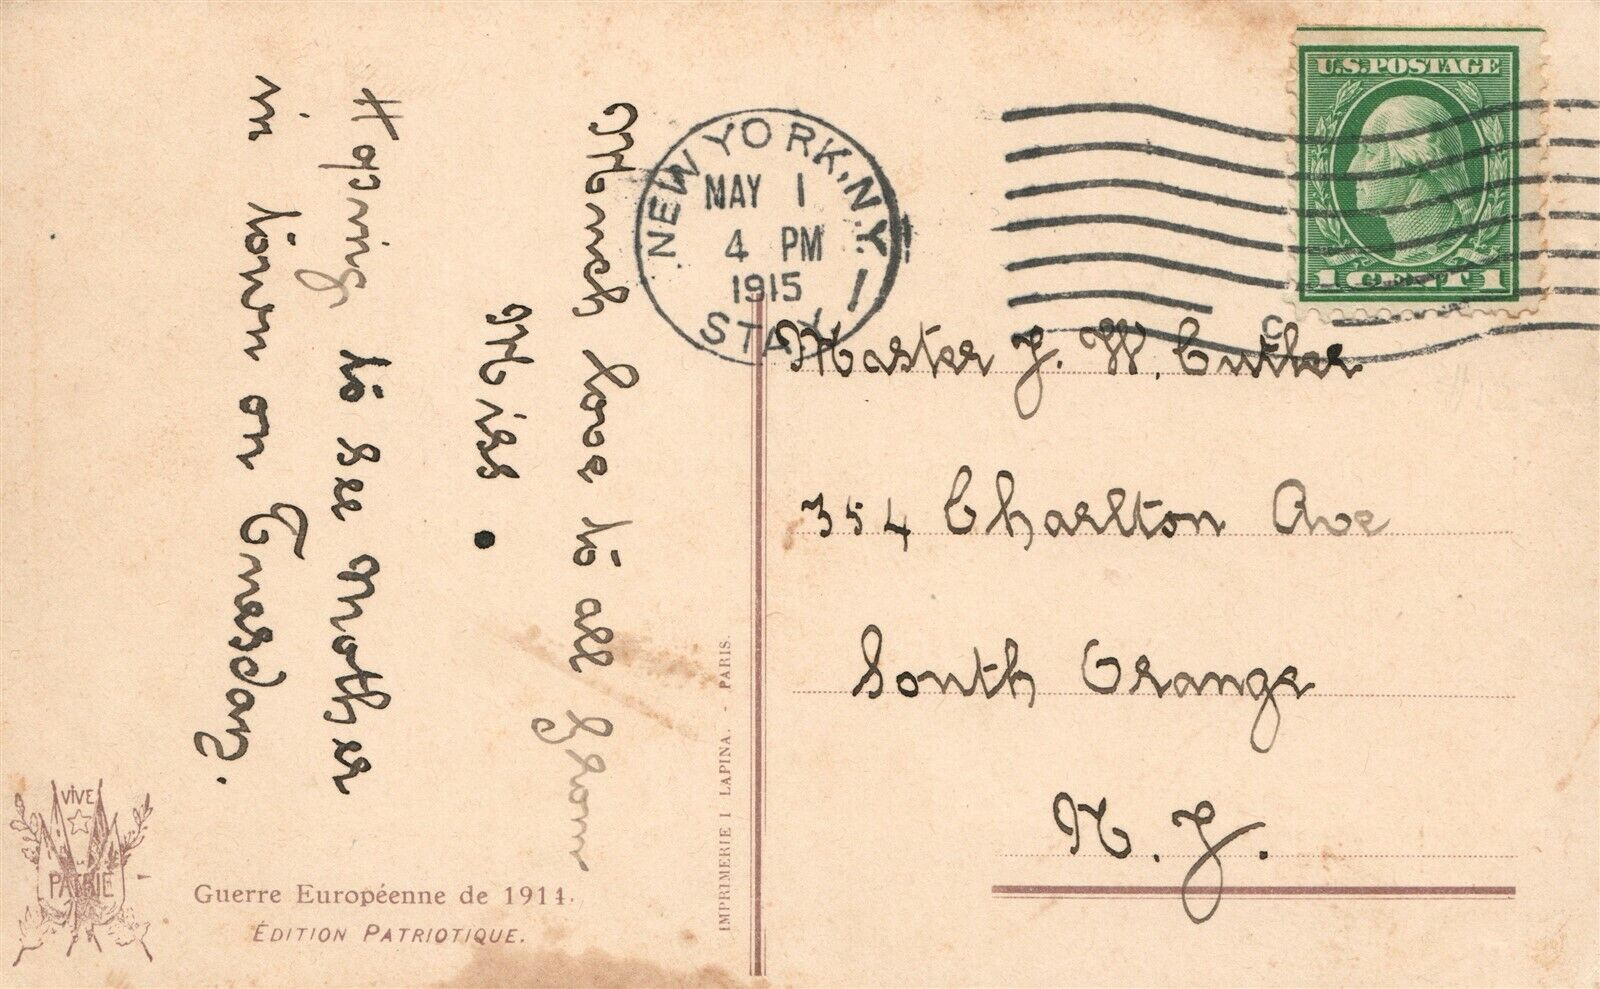 U.S. POSTAGE
1 CENT 1
NEW YORK, N.Y.
MAY 1
4 PM
1915
STA
Master J. W. Cutler
354 Charlton Ave
South Orange
N. J.
Much love to all from
Miss .
Hoping to see Mother
in town on Tuesday.
VIVE
PATRIE
Guerre Européenne de 1914.
ÉDITION PATRIOTIQUE.
IMPRIMERIE I LAPINA. - PARIS.